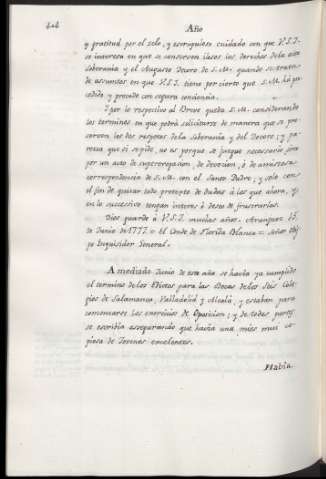 424
Año
y gratitud por el zelo, y escrupuloso cuidado con que V.S.I.
se interesa en que se conserven ilesos los derechos de la
Soberania y el Augusto Decoro de S.M. quando se trata
de asuntos en que V.S.I. tiene por cierto que S.M. há pro-
cedido y procede con segura conciencia.
Y por lo respectivo al Breve queda S.M. considerando
los terminos en que podrá solicitarse de manera que se pre-
serven los dos respetos de la Soberania y del Decoro; y pa-
rezca que si se pide, no es porque se juzgue necesario sino
por un acto de supererogacion, de devocion, ó de amistosa
correspondencia de S.M. con el Santo Padre, y solo con
el fin de quitar todo pretexto de dudas á los que ahora, y
en lo succesivo tengan interes ó deseo de frustrarlas.
Dios guarde á V.S.I. muchos años. Aranjuez 15.
de Junio de 1777. = El Conde de Florida Blanca = Señor Obis-
po Inquisidor General.
A mediado Junio de este año se havia ya cumplido
el termino de los Edictos para las Becas de los Seis Cole-
gios de Salamanca, Valladolid y Alcalá, y estaban para
comenzarse los exercicios de Oposicion; y de todas partes
se escribia asegurando que havia una mies muy co-
piosa de Jovenes excelentes.
Havia